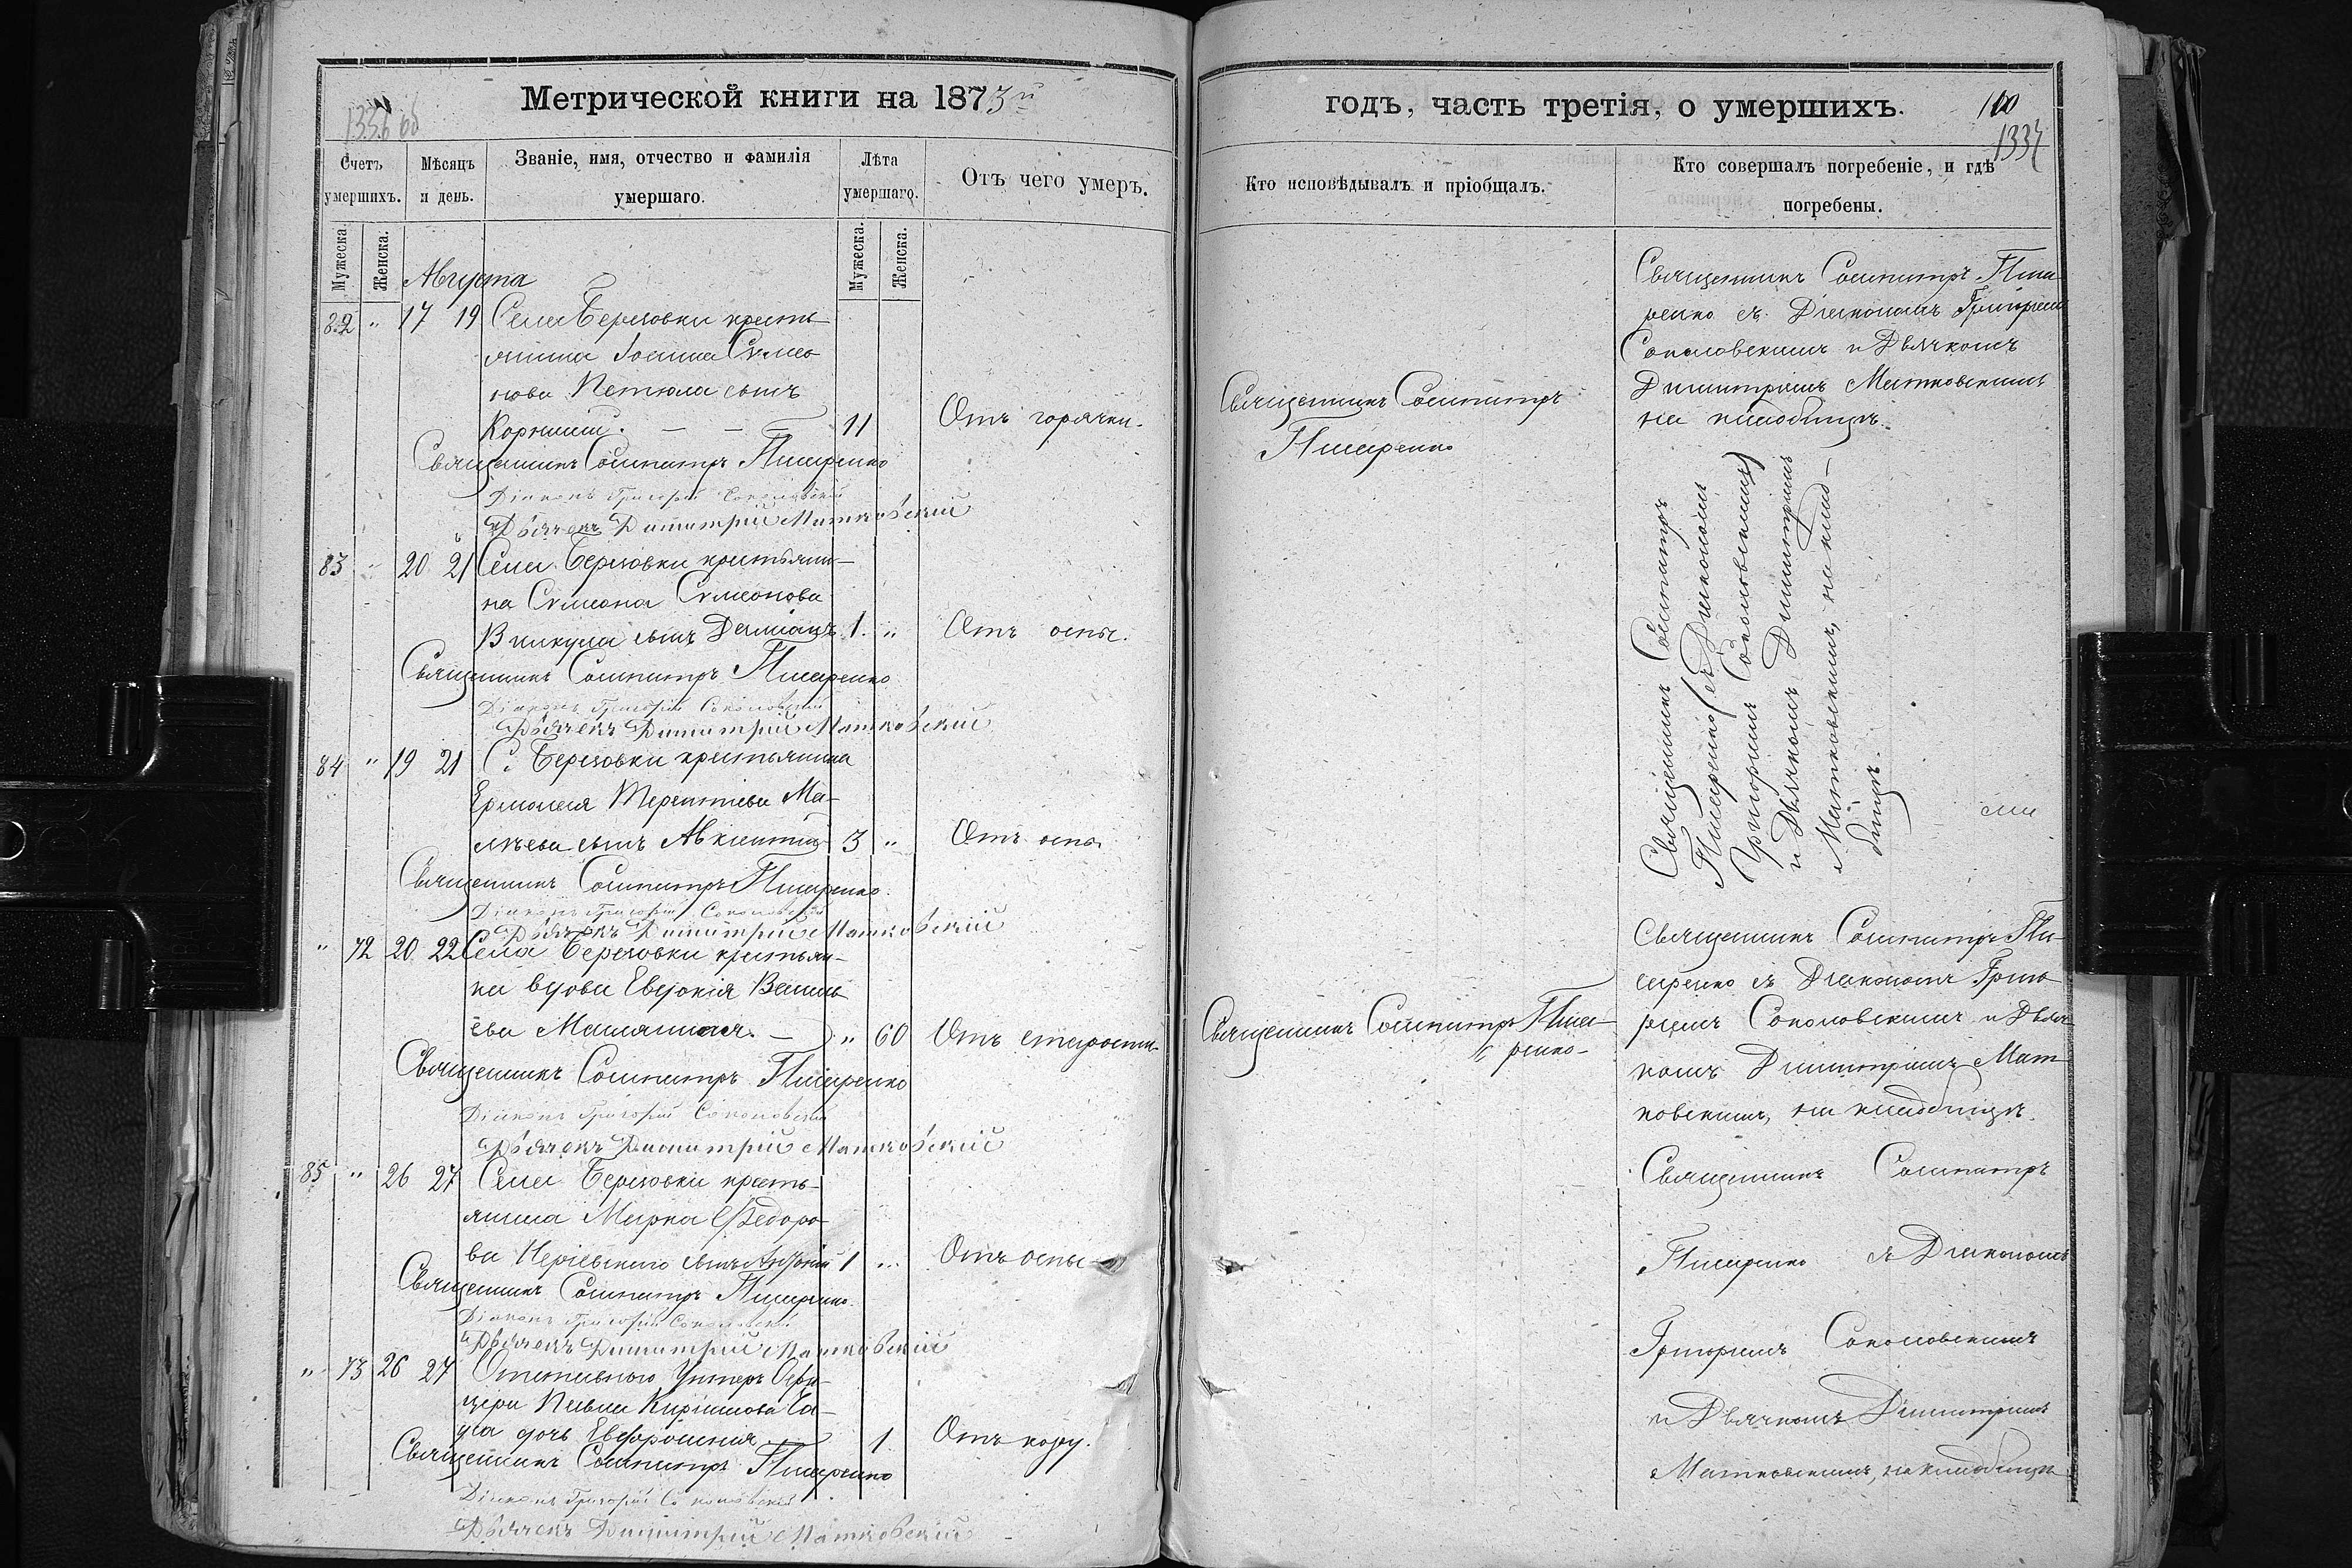 Метрической книги на 1873й
1336 об
Счетъ умершихъ.
Мѣсяцъ и день.
Званіе, имя, отчество и фамилія умершаго.
Лѣта умершаго.
Отъ чего умеръ.
Мужеска.
Женска.
Мужеска.
Женска.
Августа
82 " 17 19 Села Березовки кресть-
янина Іоанна Сѵмео-
нова сынъ
Корнилій. — — — 11 Отъ горячки.
Священникъ Сосипатръ Писаренко
Діаконъ Григорій Соколовскій
Дьячекъ Димитрій Матковскій
83 " 20 21 Села Березовки крестьяни-
на Сѵмеона Сѵмеонова
сынъ Даміанъ 1. " Отъ оспы.
Священникъ Сосипатръ Писаренко
Діаконъ Григорій Соколовскій
Дьячекъ Димитрій Матковскій
84 " 19 21 С. Березовки крестьянина
Ермолая Терентіева Ма-
сынъ 3 " Отъ оспы
Священникъ Сосипатръ Писаренко.
Діаконъ Григорій Соколовскій
Дьячекъ Димитрій Матковскій
" 72 20 22 Села Березовки крестьян-
ка вдова Евдокія Василь-
ева — " 60 Отъ старости
Священникъ Сосипатръ Писаренко
Діаконъ Григорій Соколовскій
Дьячекъ Димитрій Матковскій
85 " 26 27 Села Березовки кресть-
янина Марка Ѳедоро-
ва сынъ 1 " Отъ оспы
Священникъ Сосипатръ Писаренко.
Діаконъ Григорій Соколовскій
Дьячекъ Димитрій Матковскій
" 73 26 27 Отставного Унтеръ Офи-
цера Павла Кирилова
дочь Евфросинія 1. Отъ кору.
Священникъ Сосипатръ Писаренко
Діаконъ Григорій Соколовскій
Дьячекъ Димитрій Матковскій
годъ, часть третія, о умершихъ.
100
1337
Кто исповѣдывалъ и пріобщалъ.
Кто совершалъ погребеніе, и гдѣ
погребены.
Священникъ Сосипатръ
Писаренко
Священникъ Сосипатръ Писа-
ренко съ Діакономъ Григоріемъ
Соколовскимъ и Дьячкомъ
Димитріемъ Матковскимъ
на кладбищѣ.
Священникъ Сосипатръ
Писаренко съ Діакономъ
Григоріемъ Соколовскимъ
и Дьячкомъ Димитріемъ
Матковскимъ, на клад-
бищѣ.
Священникъ Сосипатръ Писа-
ренко
Священникъ Сосипатръ Пи-
саренко съ Діакономъ Григо-
ріемъ Соколовскимъ и Дьяч-
комъ Димитріемъ Мат-
ковскимъ, на кладбищѣ.
Священникъ Сосипатръ
Писаренко съ Діакономъ
Григоріемъ Соколовскимъ
и Дьячкомъ Димитріемъ
Матковскимъ, на кладбищѣ